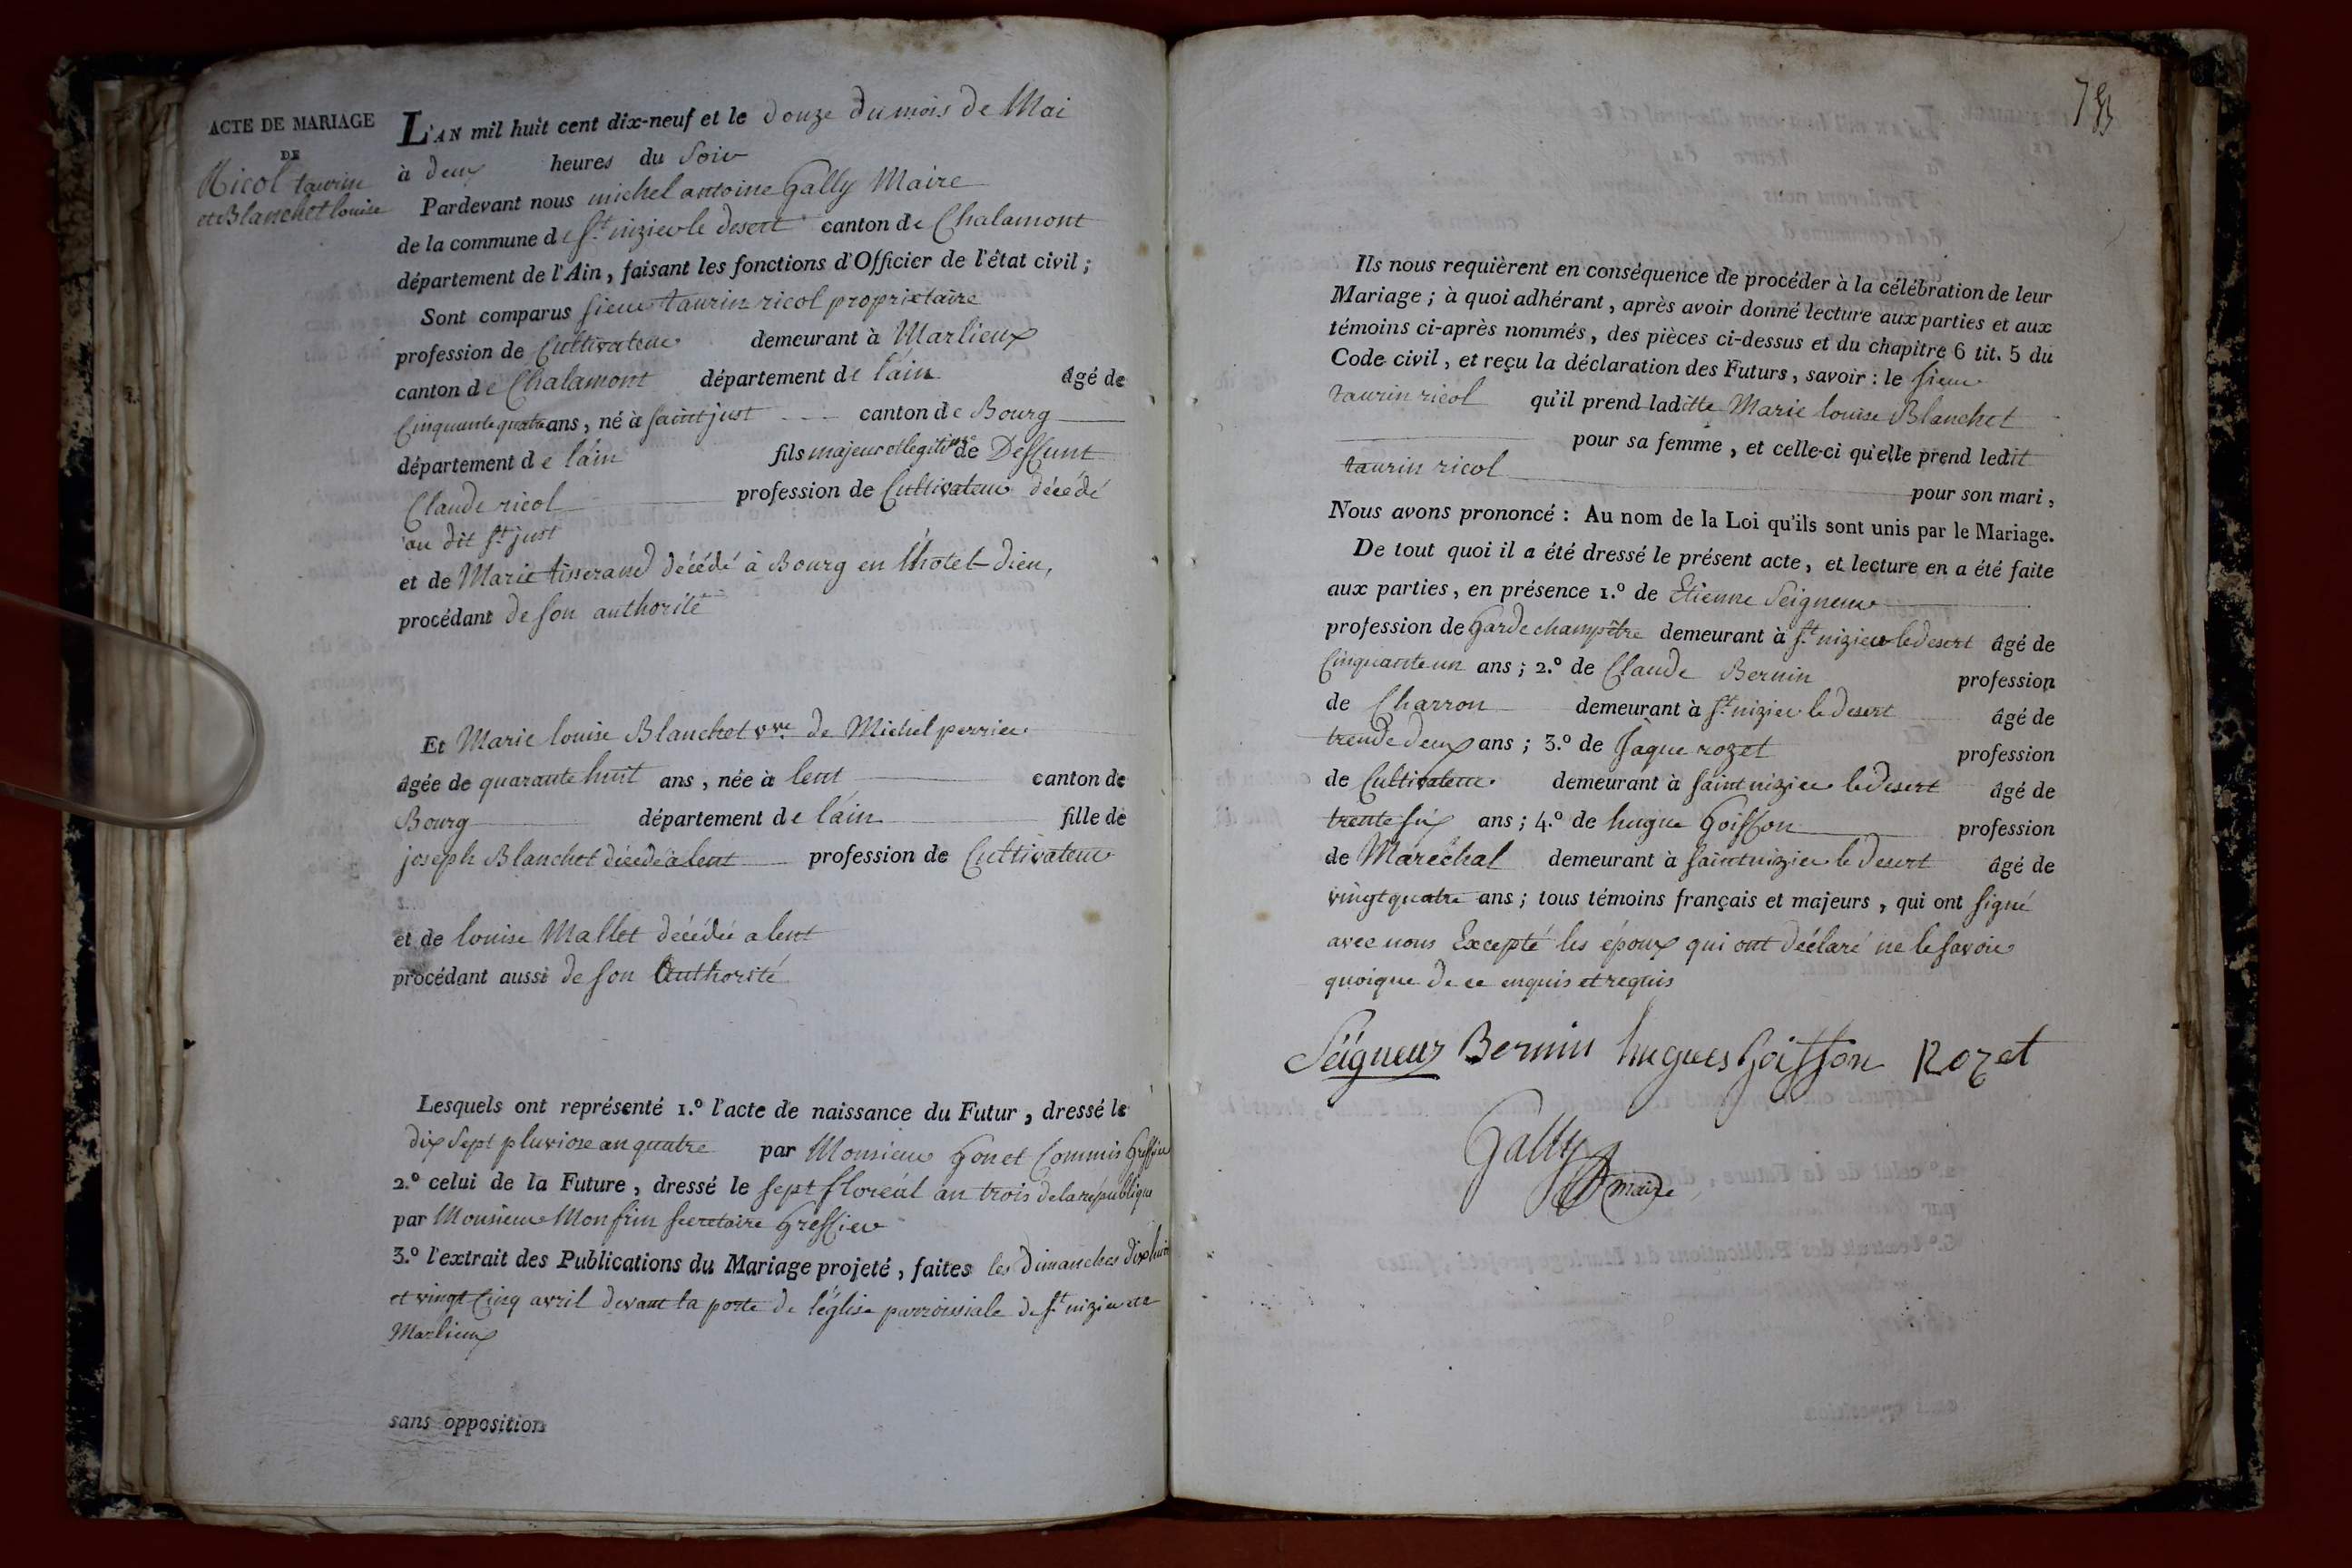 ACTE DE MARIAGE
DE
Ricol taurin
et Blanchet louise
L'AN mil huit cent dix-neuf et le douze du mois de Mai
à deux heures du Soir
Pardevant nous michel antoine Gally Maire
de la commune de St. nizier le desert canton de Chalamont
département de l'Ain, faisant les fonctions d'Officier de l'état civil;
Sont comparus sieur taurin ricol proprietaire
profession de Cultivateur demeurant à Marlieux
canton de Chalamont département de l'ain âgé de
Cinquante quatre ans, né à saint just canton de Bourg
département de l'ain fils majeur et legitime de Deffunt
Claude ricol profession de Cultivateur décédé
au dit St. just
et de Marie tisserand décédé à Bourg en l'hotel-dieu,
procédant de son authorité
Et Marie louise Blanchet vve. de Michel perrier
âgée de quarante huit ans, née à lent canton de
Bourg département de l'ain fille de
joseph Blanchet décédé a lent profession de Cultivateur
et de louise Mallet décédée a lent
procédant aussi de son Authorité
Lesquels ont représenté 1.º l'acte de naissance du Futur, dressé le
dix sept pluviose an quatre par Monsieur Gonet Commis Greffier
2.º celui de la Future, dressé le sept floréal an trois de la république
par Monsieur Monfrin secretaire Greffier
3.º l'extrait des Publications du Mariage projeté, faites les dimanches dix huit
et vingt Cinq avril devant la porte de l'église parroissiale de St. nizier et
Marlieux
sans opposition
Ils nous requièrent en conséquence de procéder à la célébration de leur
Mariage; à quoi adhérant, après avoir donné lecture aux parties et aux
témoins ci-après nommés, des pièces ci-dessus et du chapitre 6 tit. 5 du
Code civil, et reçu la déclaration des Futurs, savoir: le sieur
taurin ricol qu'il prend laditte Marie louise Blanchet
pour sa femme, et celle-ci qu'elle prend ledit
taurin ricol
pour son mari,
Nous avons prononcé: Au nom de la Loi qu'ils sont unis par le Mariage.
De tout quoi il a été dressé le présent acte, et lecture en a été faite
aux parties, en présence 1.º de Etienne Seigneur
profession de Garde champêtre demeurant à St. nizier le desert âgé de
Cinquante un ans; 2.º de Claude Bernin profession
de Charron demeurant à St. nizier le desert âgé de
trende deux ans; 3.º de Jaque rozet profession
de Cultivateur demeurant à saint nizier le desert âgé de
trente six ans; 4.º de hugue Goiffon profession
de Maréchal demeurant à saint nizier le desert âgé de
vingt quatre ans; tous témoins français et majeurs, qui ont signé
avec nous Excepté les époux qui ont déclaré ne le savoir
quoique de ce enquis et requis
Seigneur Bernin hugues Goiffon Rozet
Gally
maire